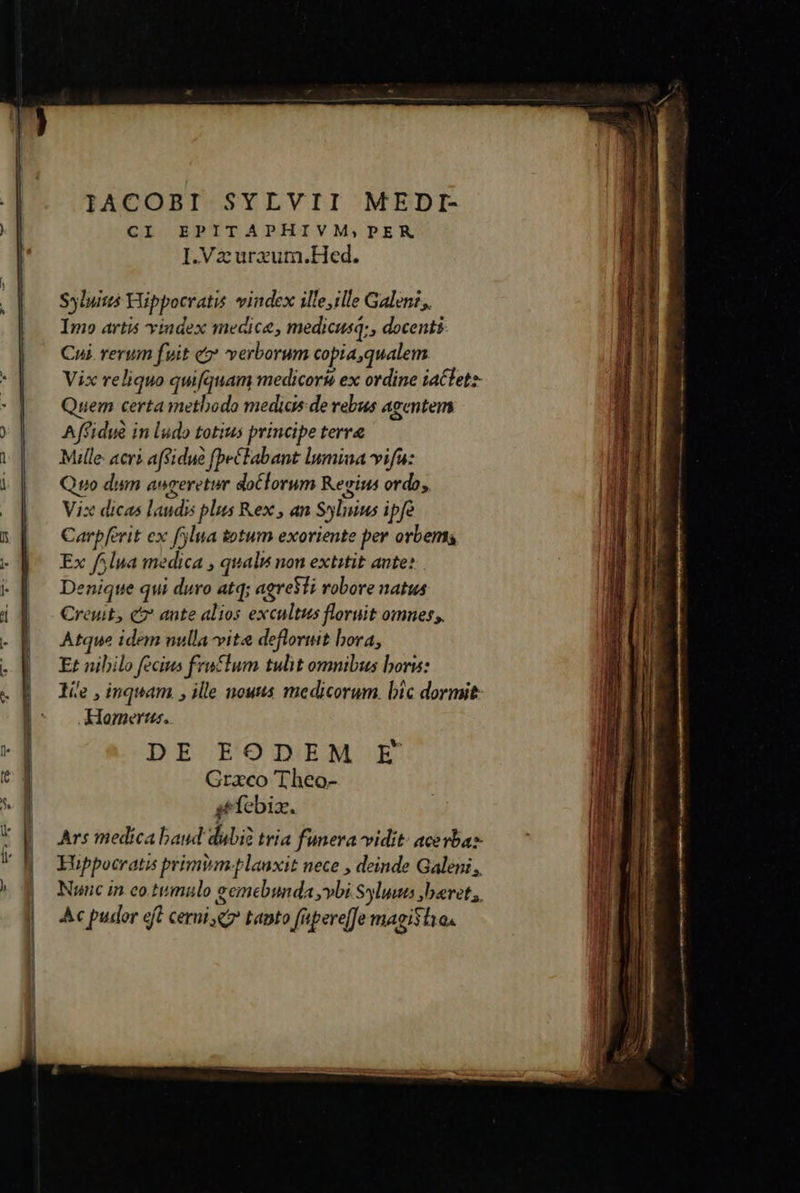 IACOBI SYLVII MEDI-
CI EPITAPHIVM, PER
I.Væuræum.Hed.
Syluius Hippocratis vindex ille, ille Galeni,
Imo artis vindex medicæ, medicusq;, docenti
Cui rerum fuit & verborum copia, qualem
Vix reliquo quisquam medicorū ex ordine iactet:
Quem certa methodo medicis de rebus agentem
Assiduè in ludo totius principe terræ
Mille acri assiduè spectabant lumina visu:
Quo dum augeretur doctorum Regius ordo,
Vix dicas laudis plus Rex, an Syluius ipse
Carpserit ex sylua totum exoriente per orbem,
Ex sylua medica, qualis non extitit ante:
Denique qui duro atq; agresti robore natus
Creuit, & ante alios excultus floruit omnes,
Atque idem nulla vitæ defloruit hora,
Et nihilo secius fructum tulit omnibus horis:
Ille, inquam, ille nouus medicorum hîc dormit
Homerus.
DE EODEM E
Græco Theo-
sebiæ.
Ars medica haud dubiè tria funera vidit acerba:
Hippocratis primùm planxit nece, deinde Galeni,
Nunc in eo tumulo gemebunda, vbi Syluius, hæret,
Ac pudor est cerni, & tanto superesse magistro.